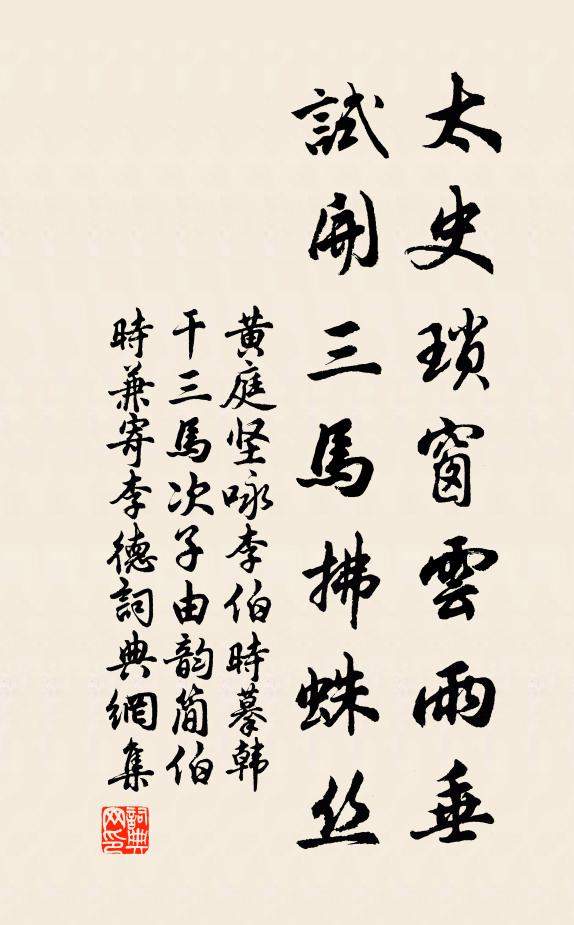 太史瑣窗雲雨垂
試開三馬拂蛛丝
黄庭坚咏李伯時摹韓
干三馬次子由韵简伯
時兼寄李德詞典網集
詞典网印